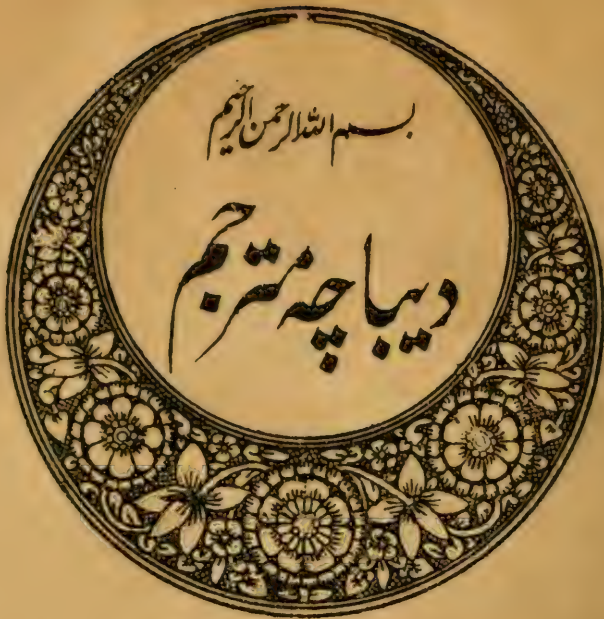 بسم اللہ الرحمن الرحیم
دیباچۂ مترجم